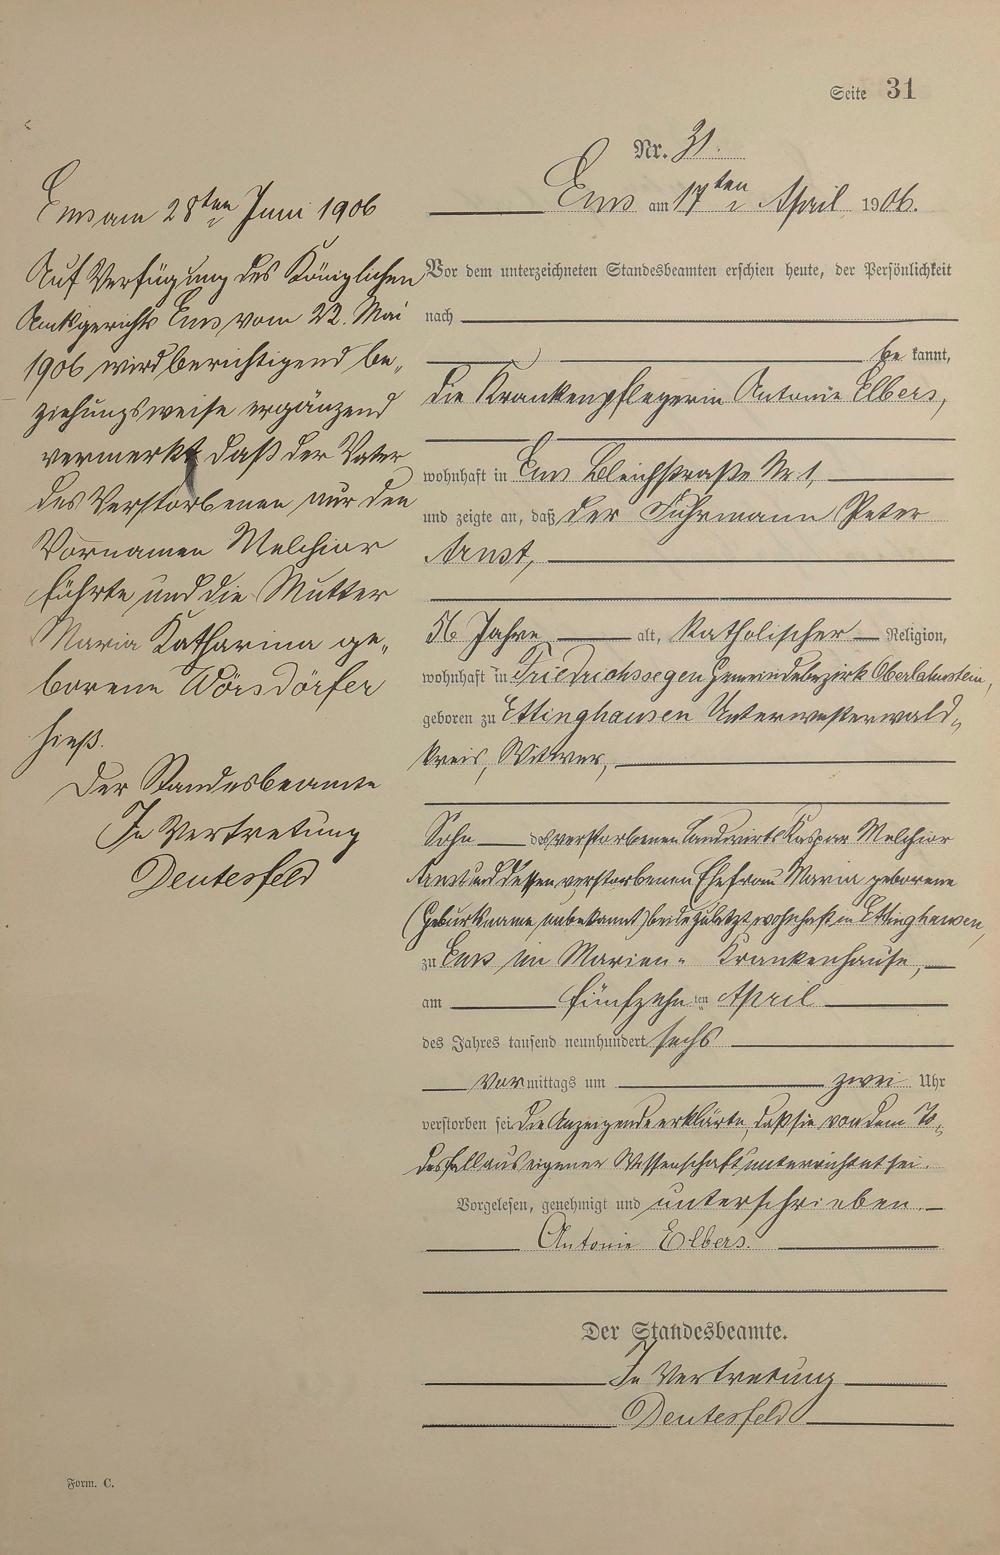 Seite 31
Nr. 31.
Ems am 17ten April 1906.
Vor dem unterzeichneten Standesbeamten erschien heute, der Persönlichkeit
nach
be kannt,
die Krankenpflegerin Antonie Elbers,
wohnhaft in Ems Bleichstraße Nr. 1,
und zeigte an, daß der Fuhrmann Peter
Arnst,
56 Jahre alt, katholischer Religion,
wohnhaft in Friedrichssegen Gemeindebezirk Oberlahnstein,
geboren zu Ettinghausen Unterwesterwald„
kreis, Witwer,
Sohn des verstorbenen Landwirts Kaspar Melchior
Arnst und dessen verstorbenen Ehefrau Maria geborene
(Geburtsname unbekannt) beide zuletzt wohnhaft in Ettinghausen,
zu Ems im Marien„ Krankenhause,
am fünfzehn ten April
des Jahres tausend neunhundert sechs
Vor mittags um zwei Uhr
verstorben sei. Die Anzeigende erklärte, daß sie von dem To„
desfall aus eigener Wissenschaft unterrichtet sei.
Vorgelesen, genehmigt und unterschrieben.
Antonie Elbers.
Der Standesbeamte.
In Vertretung
Deutesfeld
Ems am 28ten Juni 1906
Auf Verfügung des Königlichen
Amtsgerichts Ems vom 22. Mai
1906 wird berichtigend be„
ziehungsweise ergänzend
vermerkt daß der Vater
des Verstorbenen nur den
Vornamen Melchior
führte und die Mutter
Maria Katharina ge„
borene Wörsdörfer
hieß.
Der Standesbeamte
In Vertretung
Deutesfeld
Form. C.